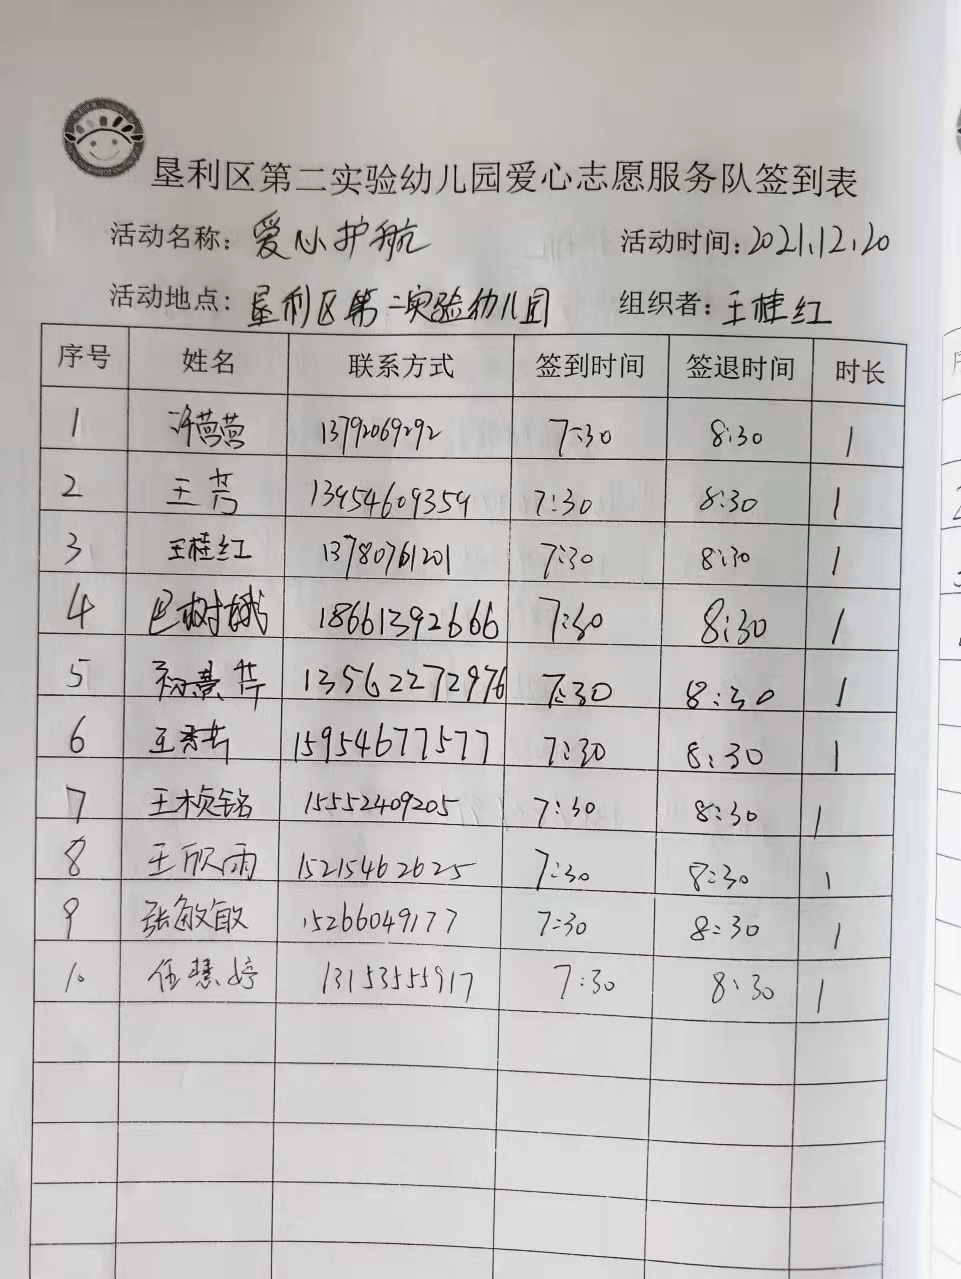 垦利区第二实验幼儿园爱心志愿服务队签到表
活动名称: 爱心护航 活动时间: 2021.12.20
活动地点: 垦利区第二实验幼儿园 组织者: 王桂红
序号 姓名 联系方式 签到时间 签退时间 时长
1 许营营 13792069292 7:30 8:30 1
2 王芳 13954609359 7:30 8:30 1
3 王桂红 13780761201 7:30 8:30 1
4 巴树娥 18661392666 7:30 8:30 1
5 13562272976 7:30 8:30 1
6 15954677577 7:30 8:30 1
7 王桢铭 15552409205 7:30 8:30 1
8 王欣雨 15215462625 7:30 8:30 1
9 张敏敏 15266049177 7:30 8:30 1
10 任慧婷 13153555917 7:30 8:30 1